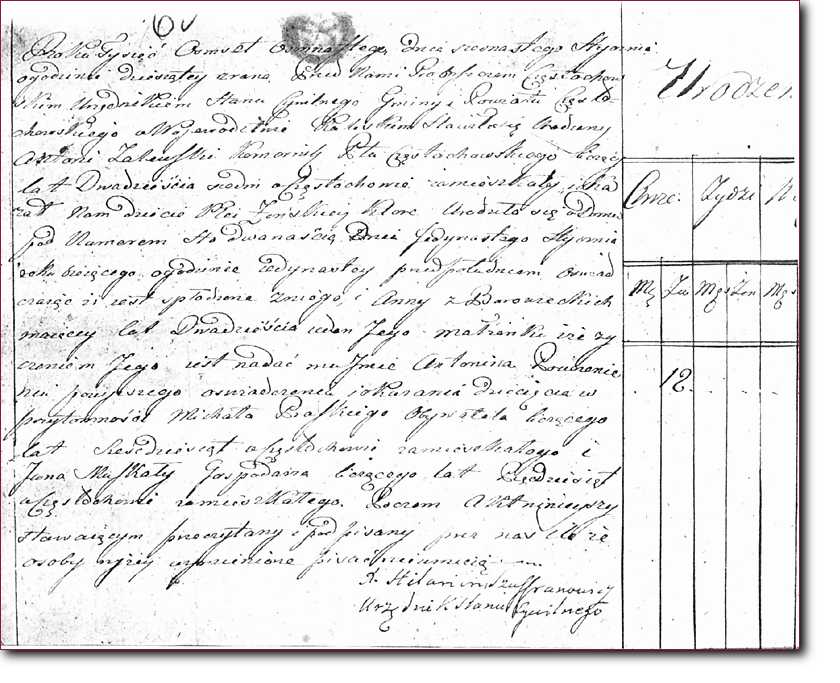 60
Roku Tysiąc Osmset Osmnastego, dnia szesnastego Stycznia
ogodzinie dziesiątey zrana, Przed Nami Proboszczem Częstochow
skim Urzędnikiem Stanu Cywilnego Gminy i Powiatu Często
chowskiego w Wojewodztwie Kaliskim Stawił się Urodzony
Antoni Zalewski Kommornik Pttu Częstochowskiego liczący
lat Dwadzieścia siedm w Częstochowie zamieszkały, i oka
zał Nam dziecię Płci Żeńskiey ktore Urodziło się w Domu
pod Numerem Sto dwanaście Dnia Jedynastego Stycznia
roku bieżącego ogodzinie jedynastey przed południem oswiad
czaiąc iż iest spłodzone zniego, i Anny z Borowieckich
maiącey lat Dwadzieścia ieden Jego małżonki iże ży
czeniem Jego iest nadać mu Jmie Antonina Po uczynie
niu powyższego oswiadczenia i okazania dziecięcia w
przytomności Michała Praskiego Obywatela liczącego
lat Szescdziesiąt w Częstochowie zamieszkałego i
Jana Muskały Gospodarza liczącego lat Piędziesiąt
w Częstochowie zamieszkałego. Poczem Akt ninieyszy
stawaiącym przeczytany i podpisany przez nas Ile że
osoby wyżey wspomnione pisać nieumieią
X. Hilarion Urzędnik Stanu Cywilnego
Urodzen
Chrze. Żydzi
Mę Żeń Męs Żen Męs
12.